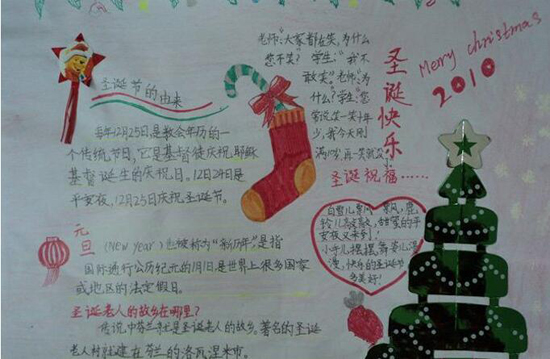 老师:"大家都在笑,为什么
您不笑?"学生:"我不
敢笑。"老师:"为
什么?"学生:"您
常说笑一笑十年
少,我今天刚
满10岁,再一笑就没
圣诞快乐
Merry christmas
2010
圣诞节的由来
每年12月25日是教会年历的一
个传统节日,它是基督徒庆祝耶稣
基督诞生的庆祝日。12月24日是
平安夜,12月25日庆祝圣诞节。
圣诞祝福……
白雪儿飘飘,鹿
铃儿敲敲,甜蜜的平
安夜又来到!
小手儿摆摆
快乐的圣诞
多美好!
元旦
(New year)也被称为"新历年"是指
国际通行公历纪元的1月1日,是世界上很多国家
或地区的法定假日。
圣诞老人的故乡在哪里?
传说中芬兰就是圣诞老人的故乡。著名的圣诞
老人村就建在芬兰的洛瓦涅米市。